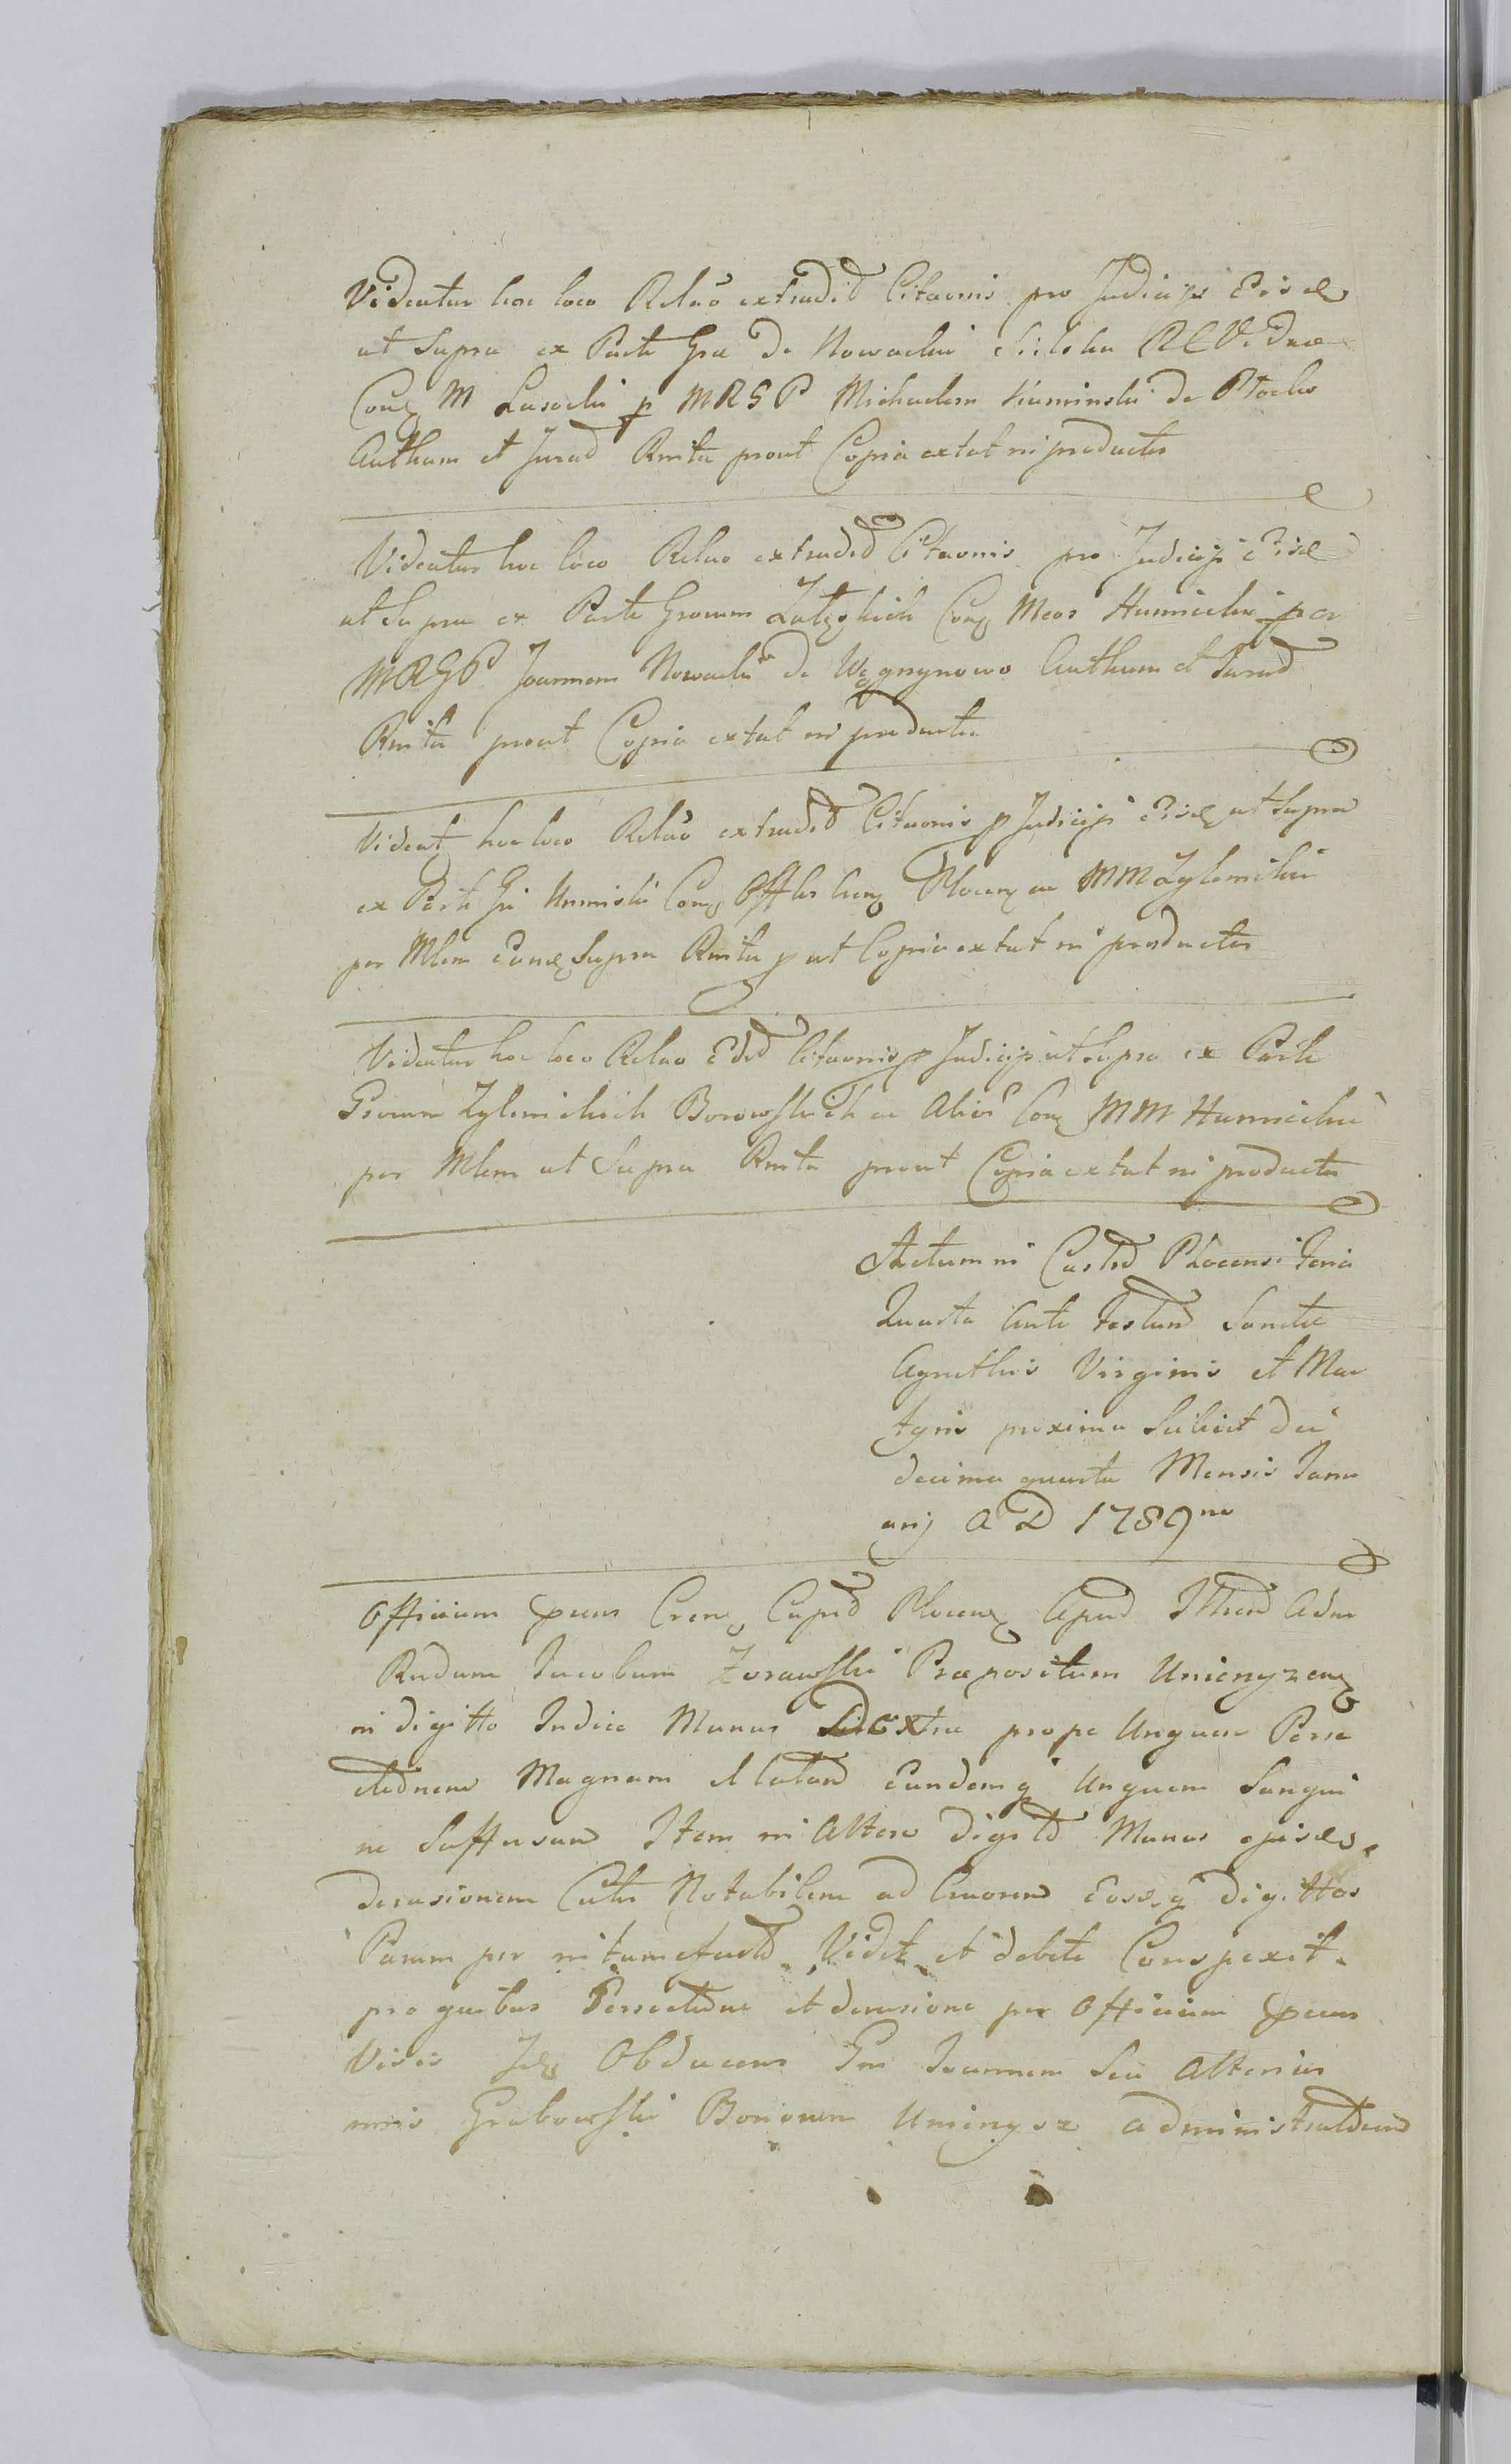 Videatur hoc loco Relao extradid Citaonis pro Judicijs Eisd
ut Supra ex Parte Gsa De Nowackie
Conq M Lasocki p MRGP Michaelem Kaminski de Plocko
Authum et Jurad Rnita prout Copia extat in productis
Videatur hoc loco Relao extradid Citaonis pro Judicijs Eisd
ut Supra ex Parte Grorum Conq Mcos Humiecki per
MRGP Joannem Nowacki de Authum et Jurad
Rnita prout Copia extat in productis
Videatq hoc loco Relao extradid Citaonis p Judicijs Eisd ut Supra
ex Parte Gsi Conq Plocenq ac MM Zglenickie
per Mlem Supra Rnita put Copia extat in productis
Videatur hoc loco Relao Citaonis p Judicijs ut Supra ex Parte
Grorum Zglenickich Borowskich ac Alior Conq MM Humieckie
per Mlem ut Supra Rnita prout Copia extat in productis
Actum in Castro Plocensi Feria
Quarta Ante Festum Sanctae
Agnethis Virginis et Mar
tyris proxima Scilicet die
decima quarta Mensis Janu
arij A D 1789no
Officium Capt Plocenq Apud Adm
Rndum Jacobum Zorawski Praepositum
in digitto Indice Manus Dextrae prope Unguem
Magnam Eundemq Unguem Sangui
ne Suffusum Item in Altero digitto Manus ejusd
derasionem Cutis Notabilem ad Cruorem Eosdq digittos
Parum per intumefactos Vidit et debite Conspexit
pro quibus et derasione per Officium
Visis Idq Obducens Gm Joannem Seu Alterius
nnis Grabowski Bonorum administratorem